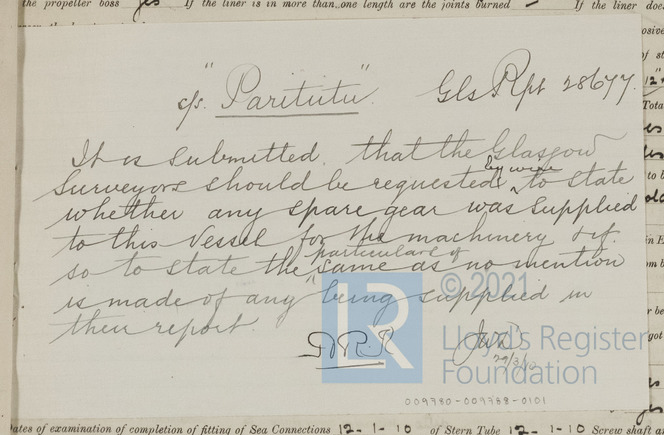 the propeller boss yes If the liner is in more than one length are the joints burned — If the liner does
c/s. "Paritutu". Gls Rpt 28677.
It is submitted that the Glasgow
Surveyors should be requested by wire to state
whether any spare gear was supplied
to this Vessel for the machinery & if
so to state the particulars of same as no mention
is made of any being supplied in
their report
© 2021
LR
Lloyd's Register
Foundation
29/3/10
009780-009788-0101
Dates of examination of completion of fitting of Sea Connections 12-1-10 of Stern Tube 12-1-10 Screw shaft a